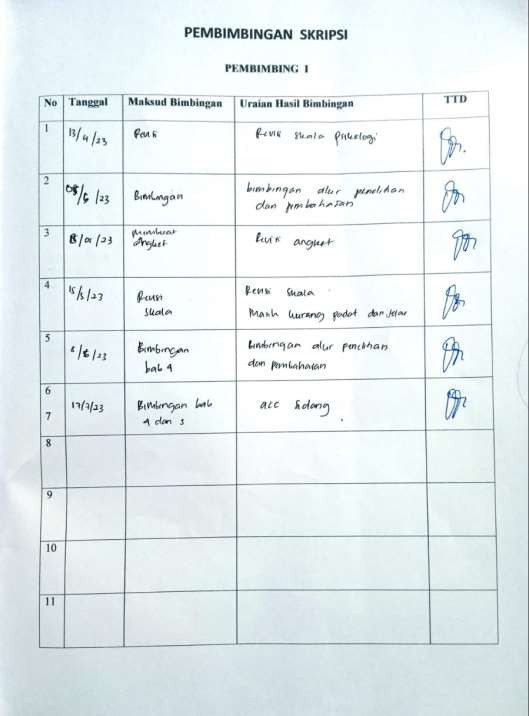 PEMBIMBINGAN SKRIPSI
PEMBIMBING I
No Tanggal Maksud Bimbingan Uraian Hasil Bimbingan TTD
1 13/4/23 Revisi Revisi skala psikologi
2 08/5/23 Bimbingan bimbingan alur penelitian
dan pembahasan
3 /23 membuat
Angket Revisi angket
4 15/5/23 Revisi
skala Revisi skala
Masih kurang padat dan jelas
5 /6/23 Bimbingan
bab 4 bimbingan alur penelitian
dan pembahasan
6
7 17/7/23 Bimbingan bab
4 dan 5 acc sidang
8
9
10
11